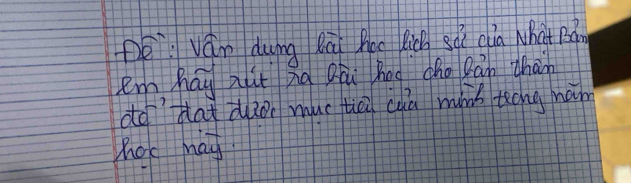 Đề: Vận dụng bài học lịch sử của Nhật Bản
em hãy rút ra bài học cho bản thân
để đạt được mục tiêu của mình trong năm
học này.